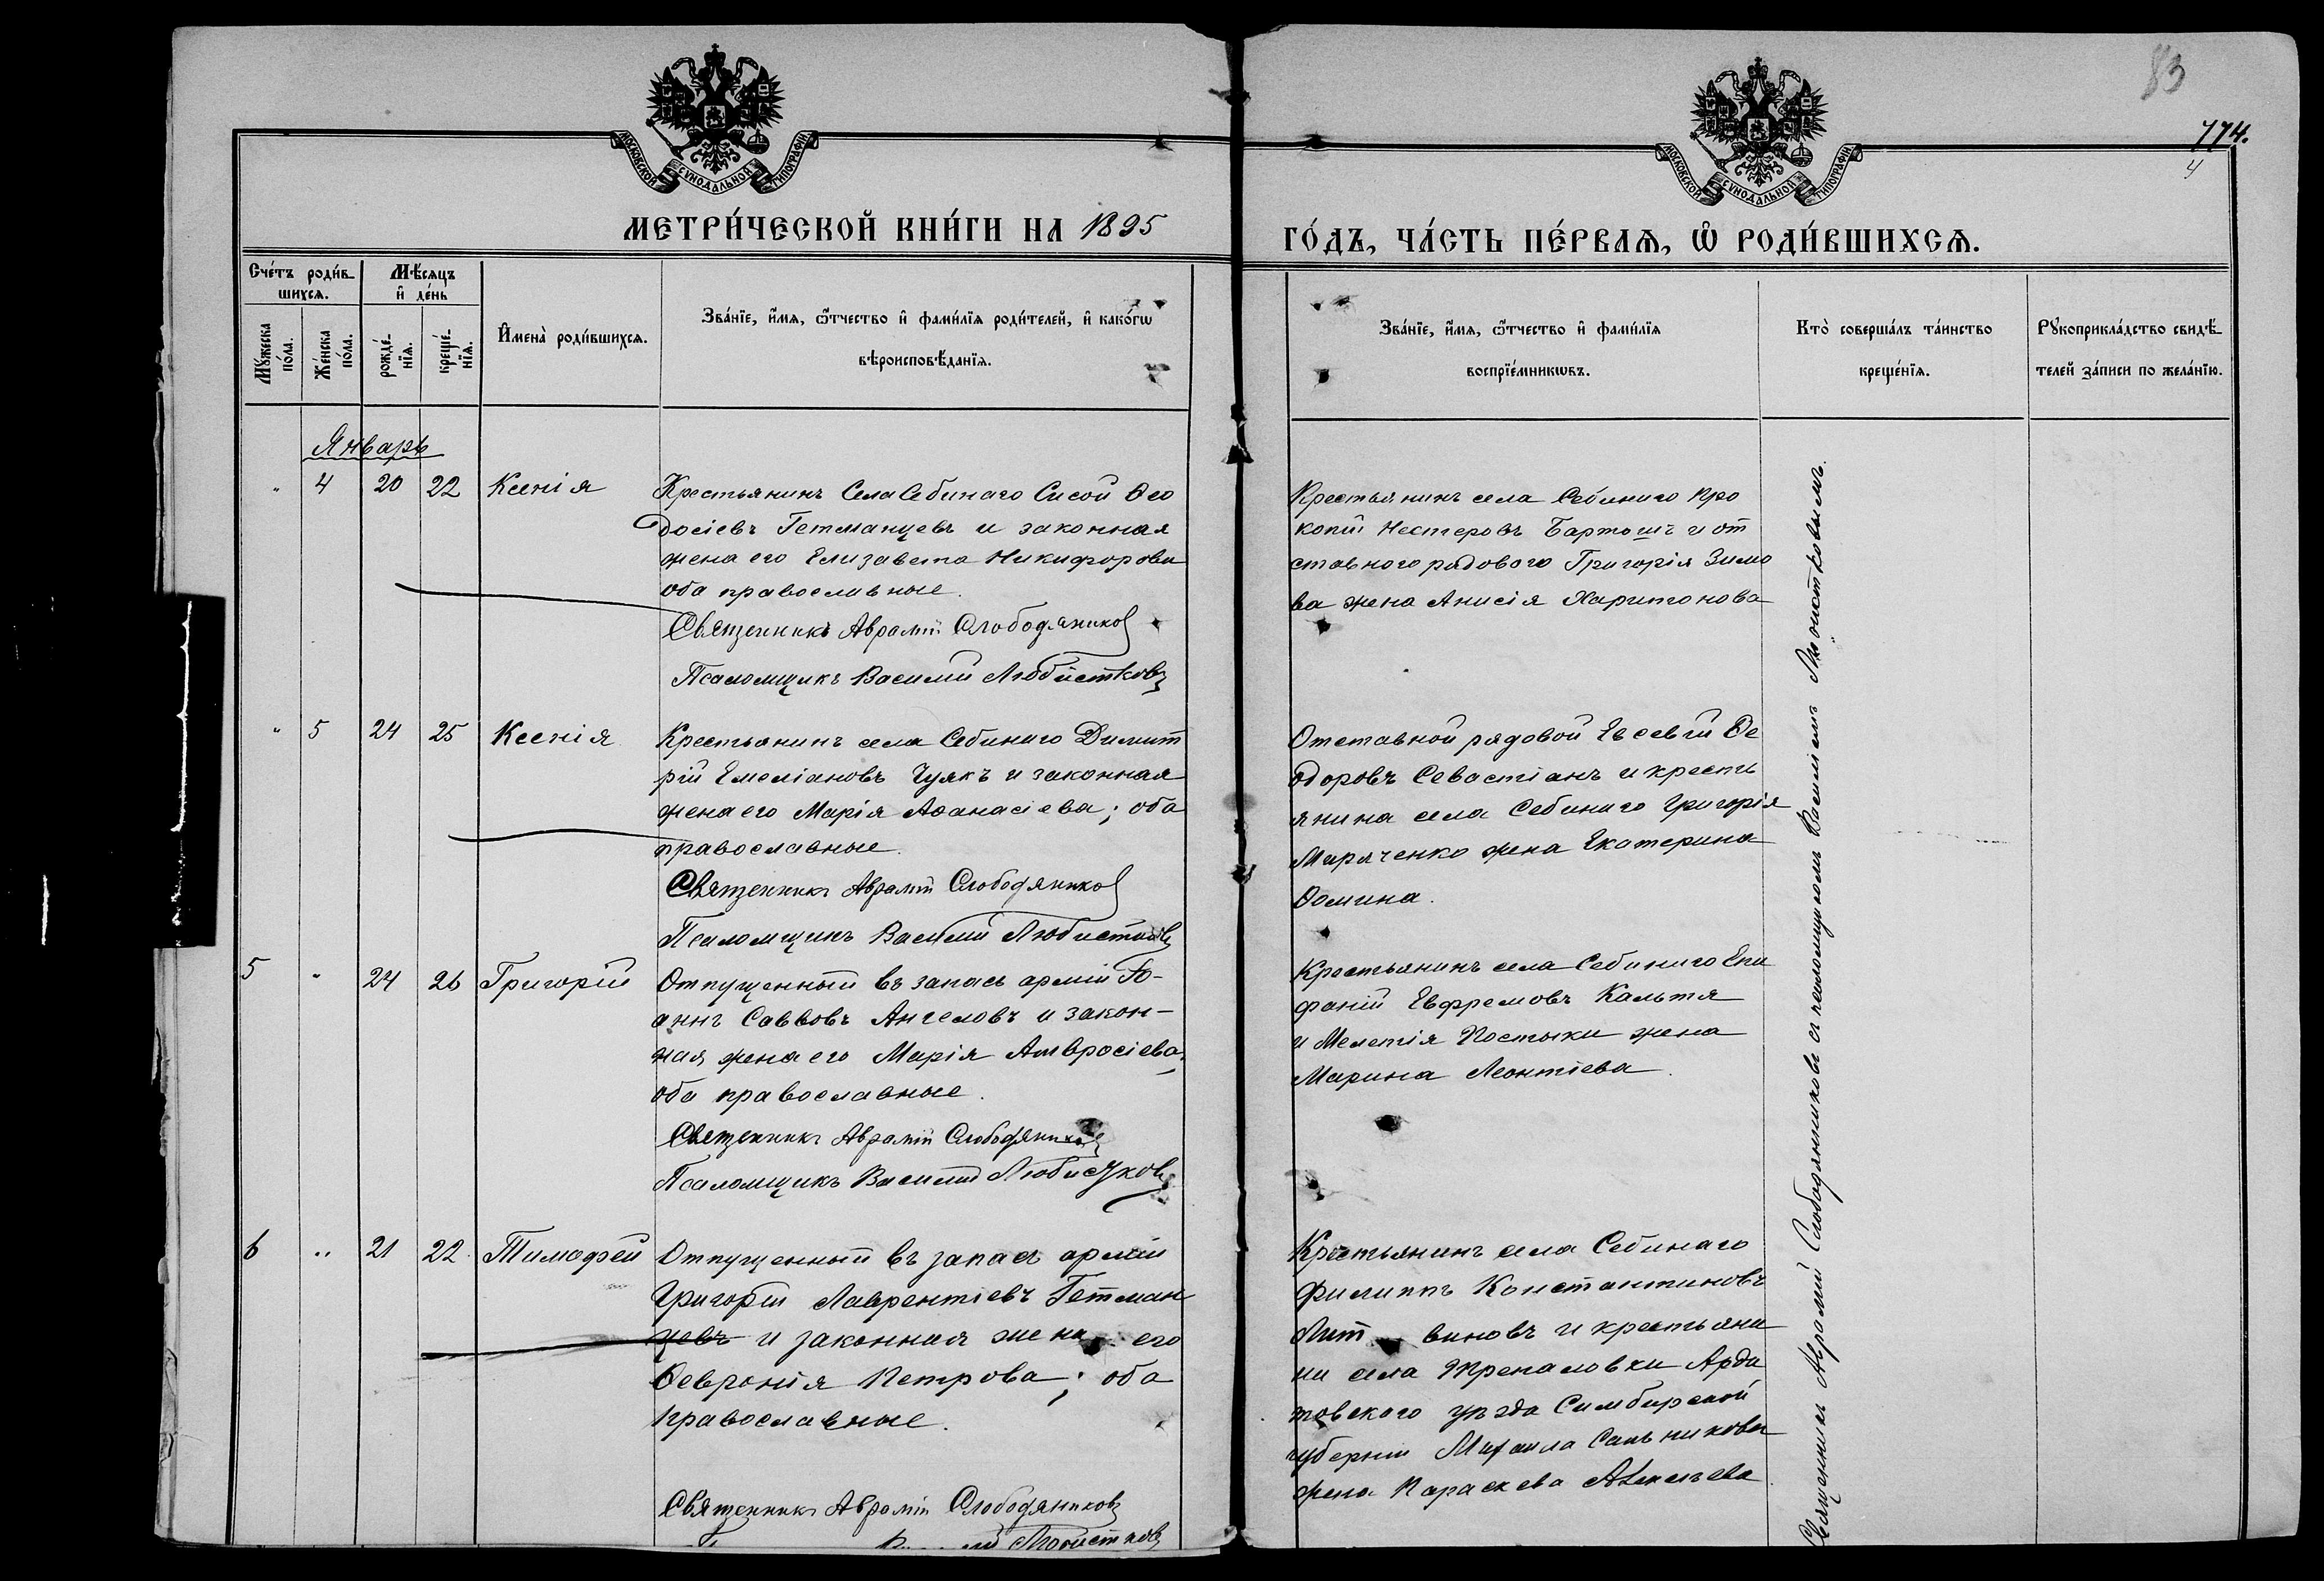 83
774.
4
МОСКОВСКОЙ СѴНОДАЛЬНОЙ ТИПОГРАФІИ
МОСКОВСКОЙ СѴНОДАЛЬНОЙ ТИПОГРАФІИ
МЕТРИ́ЧЕСКОЙ КНИ́ГИ НА 1895
ГО́ДЪ, ЧА́СТЬ ПЕ́РВАѦ, Ѡ҆ РОДИ́ВШИХСѦ.
Сче́тъ роди́в-
шихсѧ.
Мѣ́сѧцъ
и҆ де́нь
Мꙋ́жеска
по́ла.
Же́нска
по́ла.
рожде́-
нїѧ.
креще́-
нїѧ.
И҆мена̀ роди́вшихсѧ.
Зва́нїе, и҆́мѧ, ѻ҆́тчество и҆ фами́лїѧ роди́телей, и҆ како́гѡ
вѣроисповѣ́данїѧ.
Зва́нїе, и҆́мѧ, ѻ҆́тчество и҆ фами́лїѧ
воспрїе́мникѡвъ.
Кто̀ соверша́лъ та́инство
креще́нїѧ.
Рꙋкоприкла́дство свидѣ́-
телей за́писи по жела́нїю.
Январь
" 4 20 22 Ксенія
Крестьянинъ Села Себинаго Сисой Ѳео
досіевъ Гетманцевъ и законная
жена его Елизавета Никифорова
оба православные.
Священникъ Аврамій Слободяников
Псаломщикъ Василій Любистковъ
Крестьянинъ села Себинаго Про
копій Нестеровъ Бартошъ и от
ставного рядового Григорія Зимо
ва жена Анисія Харитонова
" 5 24 25 Ксенія
Крестьянинъ села Себинаго Димит
рій Емеліановъ Чуякъ и законная
жена его Марія Аѳанасіева; оба
православные.
Священникъ Аврамій Слободяников
Псаломщикъ Василій Любистковъ
Отставной рядовой Евсевій Ѳе
одоровъ Севастіанъ и кресть
янина села Себинаго Григорія
Миряченко жена Екатерина
Ѳомина.
5 " 24 26 Григорій
Отпущенный въ запасъ арміи Іо-
аннъ Саввовъ Ангеловъ и закон-
ная жена его Марія Амвросіева;
оба православные.
Священникъ Аврамій Слободяниковъ
Псаломщикъ Василій Любистковъ
Крестьянинъ села Себинаго Епи
фаній Евфремовъ Кальтя
и Мелетія Постыки жена
Марина Леонтіева.
6 " 21 22 Тимофей
Отпущенный въ запасъ арміи
Григорій Лаврентіевъ Гетман
цевъ и законная жена его
Ѳевронія Петрова; оба
православные.
Священникъ Аврамій Слободяниковъ
Любистковъ
Крестьянинъ села Себинаго
Филиппъ Константиновъ
Лит виновъ и крестьяни
на села Арда
товскаго уѣзда Симбирской
губерніи Михаила
жена Параскева
Священникъ Аврамій Слободяниковъ съ псаломщикомъ Василіемъ Любистковымъ.